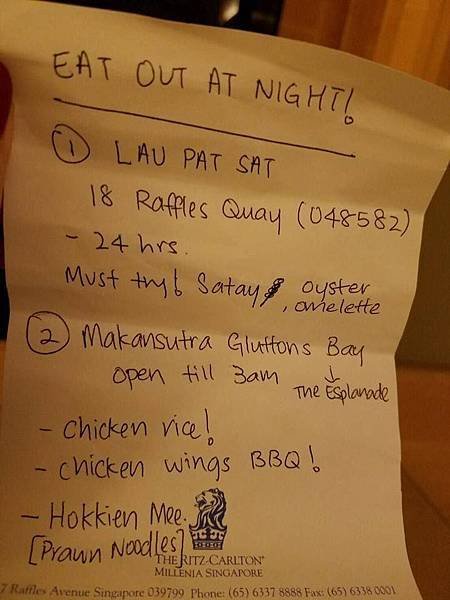 EAT OUT AT NIGHT!
① LAU PAT SAT
18 Raffles Quay (048582)
- 24 hrs.
Must try! Satay, oyster omelette
② Makansutra Gluttons Bay
open till 3am ↓ The Esplanade
- Chicken rice!
- chicken wings BBQ!
- Hokkien Mee.
[Prawn Noodles]
THE RITZ-CARLTON®
MILLENIA SINGAPORE
7 Raffles Avenue Singapore 039799 Phone: (65) 6337 8888 Fax: (65) 6338 0001